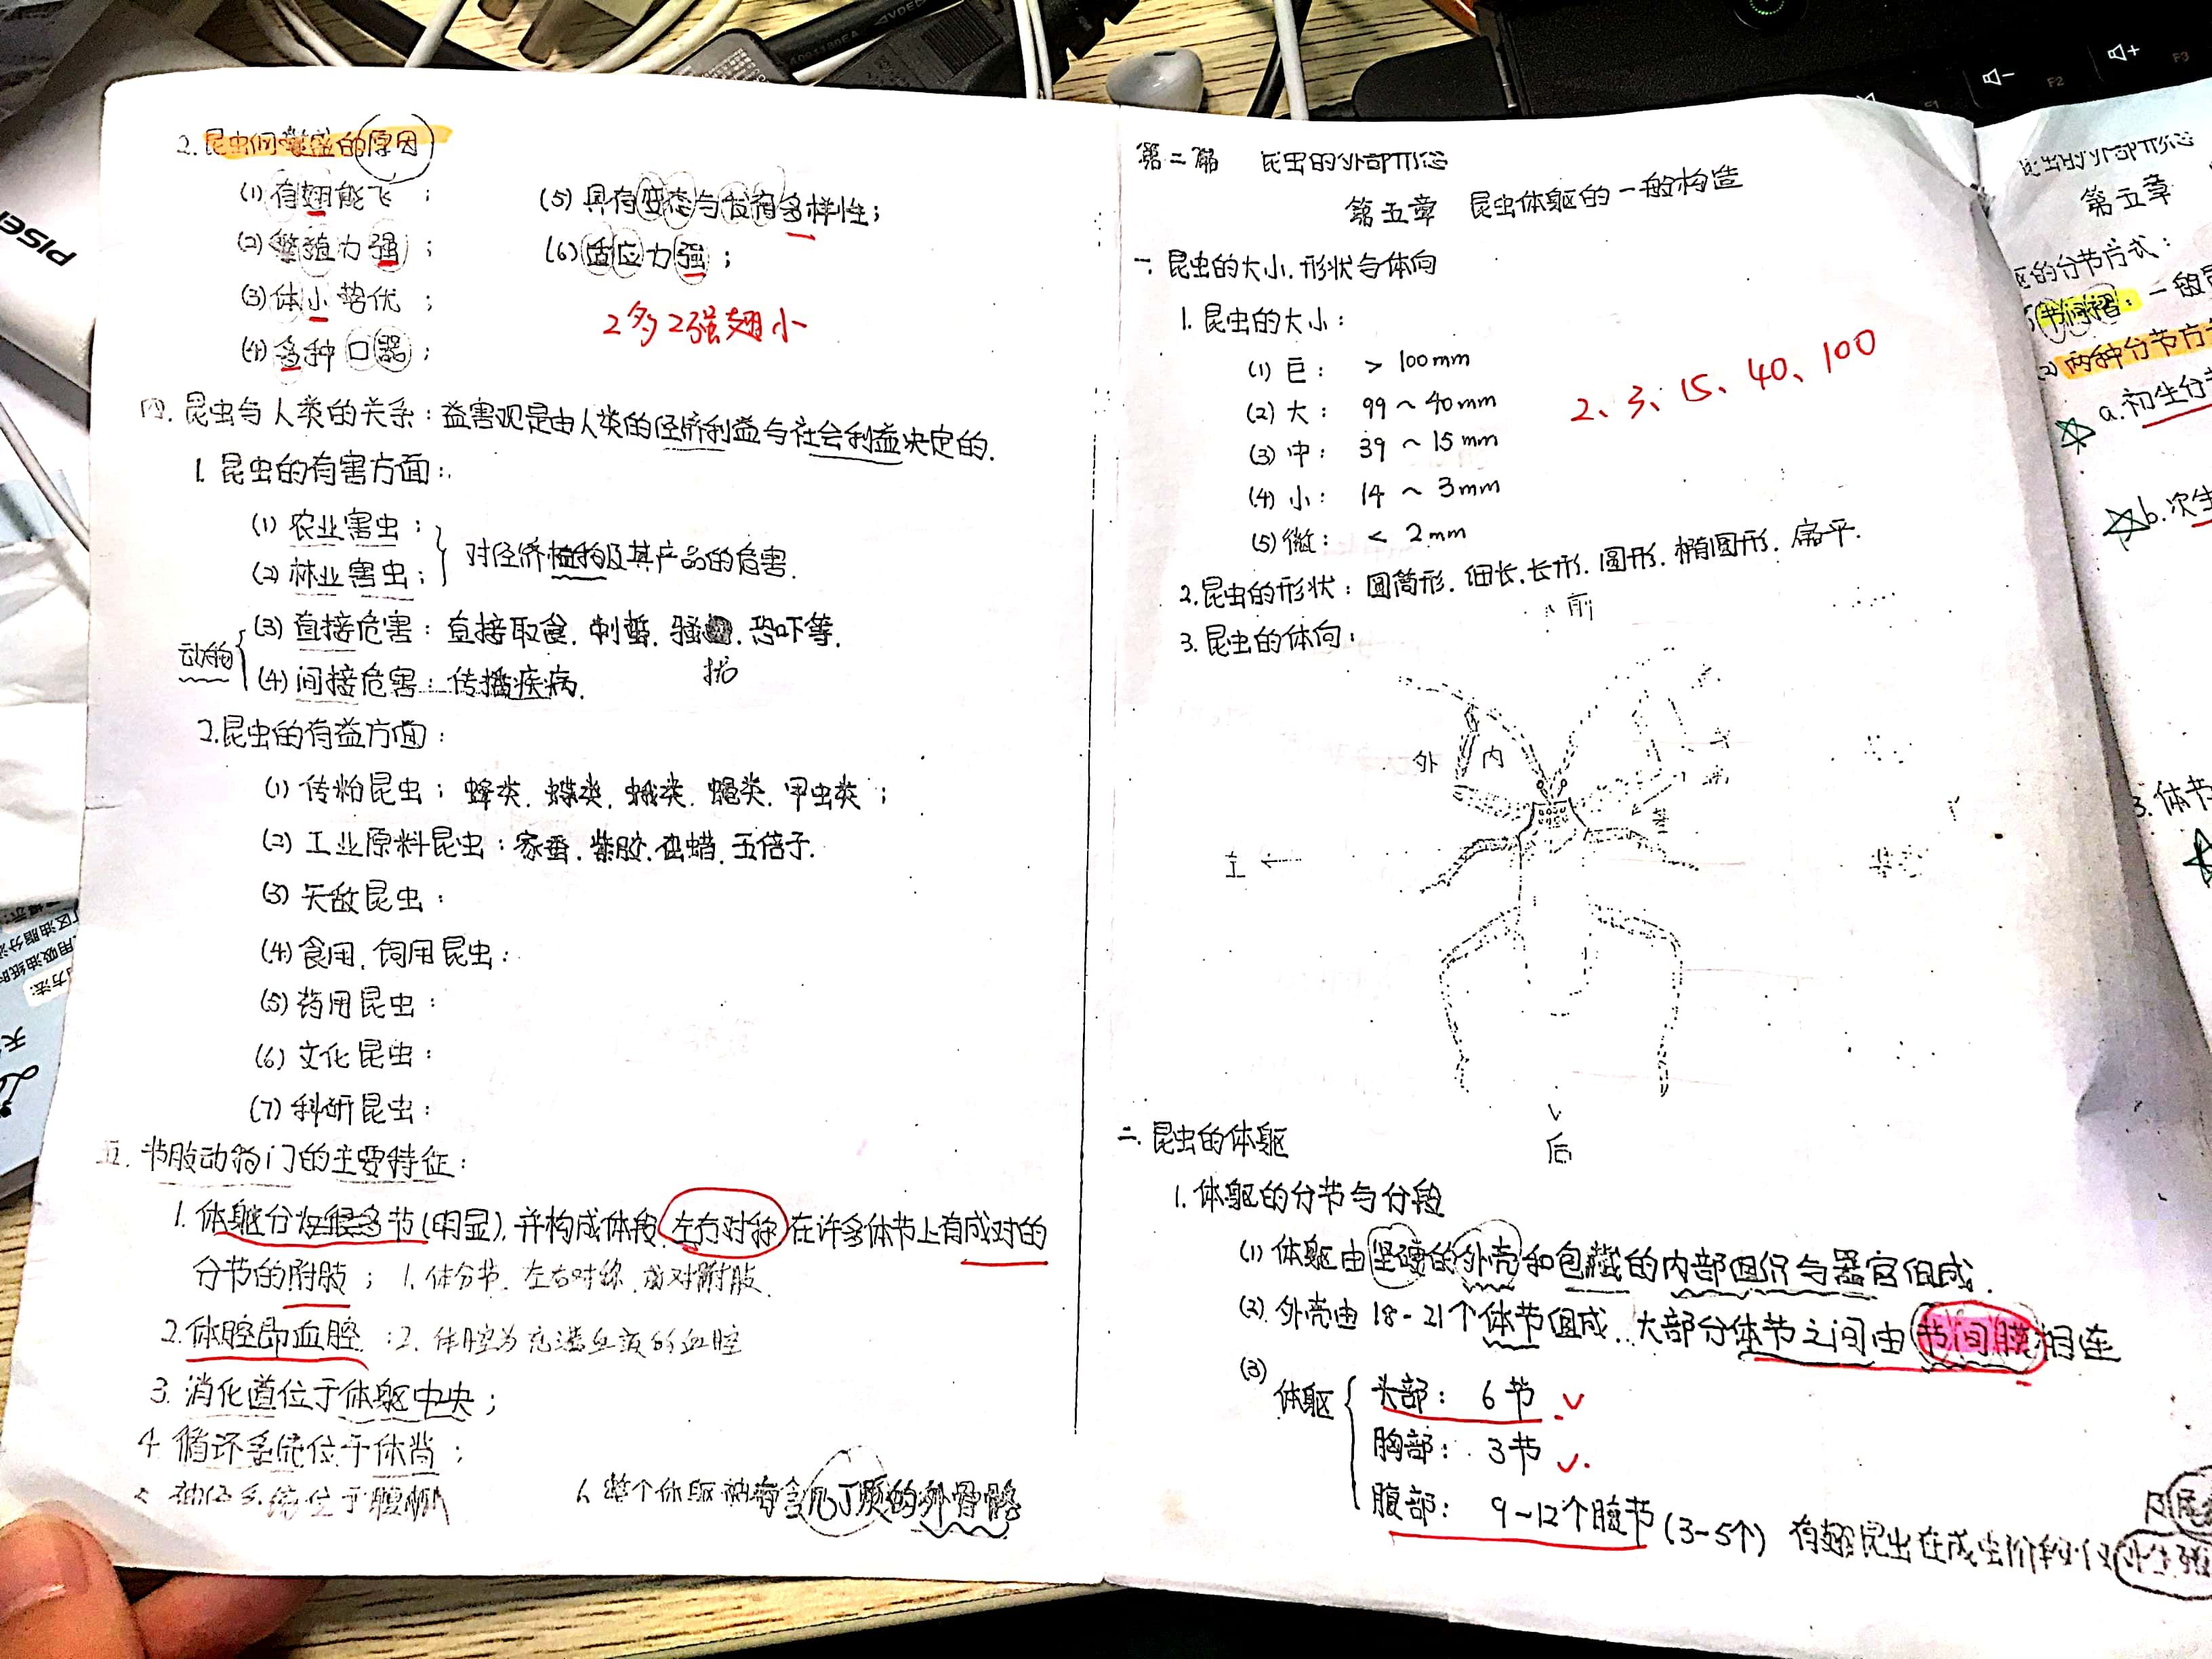 2. 昆虫们繁盛的原因
(1) 有翅能飞；
(2) 繁殖力强；
(3) 体小势优；
(4) 多种口器；
(5) 具有变态与发育多样性；
(6) 适应力强；
2多2强翅小
四. 昆虫与人类的关系：益害观是由人类的经济利益与社会利益决定的.
1. 昆虫的有害方面：
(1) 农业害虫；
(2) 林业害虫；
对经济植物及其产品的危害.
动物
(3) 直接危害：直接取食. 刺螫. 骚扰. 恐吓等.
(4) 间接危害：传播疾病.
2. 昆虫的有益方面：
(1) 传粉昆虫：蜂类. 蝶类. 蛾类. 蝇类. 甲虫类；
(2) 工业原料昆虫：家蚕. 紫胶. 虫蜡. 五倍子.
(3) 天敌昆虫：
(4) 食用. 饲用昆虫：
(5) 药用昆虫：
(6) 文化昆虫：
(7) 科研昆虫：
五. 节肢动物门的主要特征：
1. 体躯分为很多节(明显), 并构成体段. 左右对称 在许多体节上有成对的
分节的附肢； 1. 体分节. 左右对称. 成对附肢.
2. 体腔即血腔. : 2. 体腔为充满血液的血腔
3. 消化道位于体躯中央；
4. 循环系统位于体背；
系统位于腹
6. 整个体躯被有含几丁质的外骨骼
第二篇 昆虫的外部形态
第五章 昆虫体躯的一般构造
一. 昆虫的大小. 形状与体向
1. 昆虫的大小：
(1) 巨： > 100mm
(2) 大： 99 ~ 40mm
(3) 中： 39 ~ 15mm
(4) 小： 14 ~ 3mm
(5) 微： < 2mm
2、3、15、40、100
2. 昆虫的形状：圆筒形. 细长. 长形. 圆形. 椭圆形. 扁平.
3. 昆虫的体向：
前
外
内
后
二. 昆虫的体躯
1. 体躯的分节与分段
(1) 体躯由坚硬的外壳和包藏的内部组织与器官组成.
(2) 外壳由18-21个体节组成. 大部分体节之间由节间膜相连
(3)
体躯
头部： 6节
胸部： 3节
腹部： 9~12个腹节(3~5个) 有翅昆虫在成虫阶段仅
及尾
外生殖
昆虫的外部形态
第五章
区的分节方式：
节间褶：一般
(2) 两种分节方
a. 初生分
b. 次生
3. 体节
pisen
F1
F2
F3